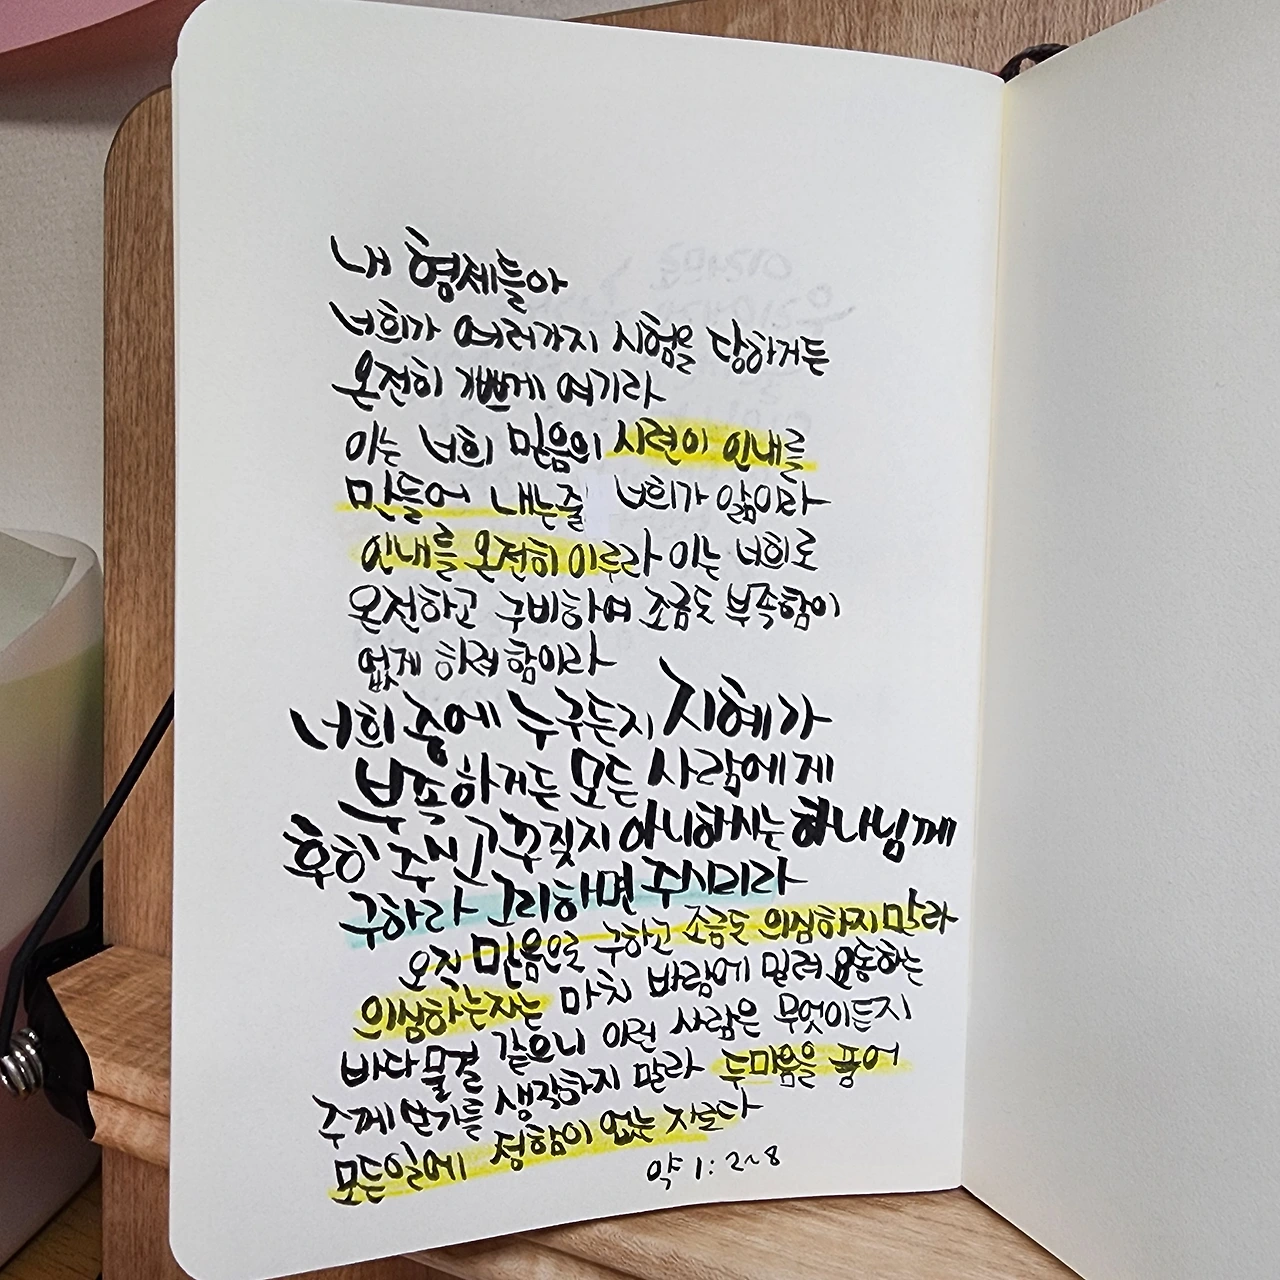 내 형제들아
너희가 여러가지 시험을 당하거든
온전히 기쁘게 여기라
이는 너희 믿음의 시련이 인내를
만들어 내는줄 너희가 앎이라
인내를 온전히 이루라 이는 너희로
온전하고 구비하여 조금도 부족함이
없게 하려 함이라
너희 중에 누구든지 지혜가
부족하거든 모든 사람에게
후히 주시고 꾸짖지 아니하시는 하나님께
구하라 그리하면 주시리라
오직 믿음으로 구하고 조금도 의심하지 말라
의심하는자는 마치 바람에 밀려 요동하는
바다 물결 같으니 이런 사람은 무엇이든지
주께 얻기를 생각하지 말라 두마음을 품어
모든일에 정함이 없는 자로다
약 1: 2~8